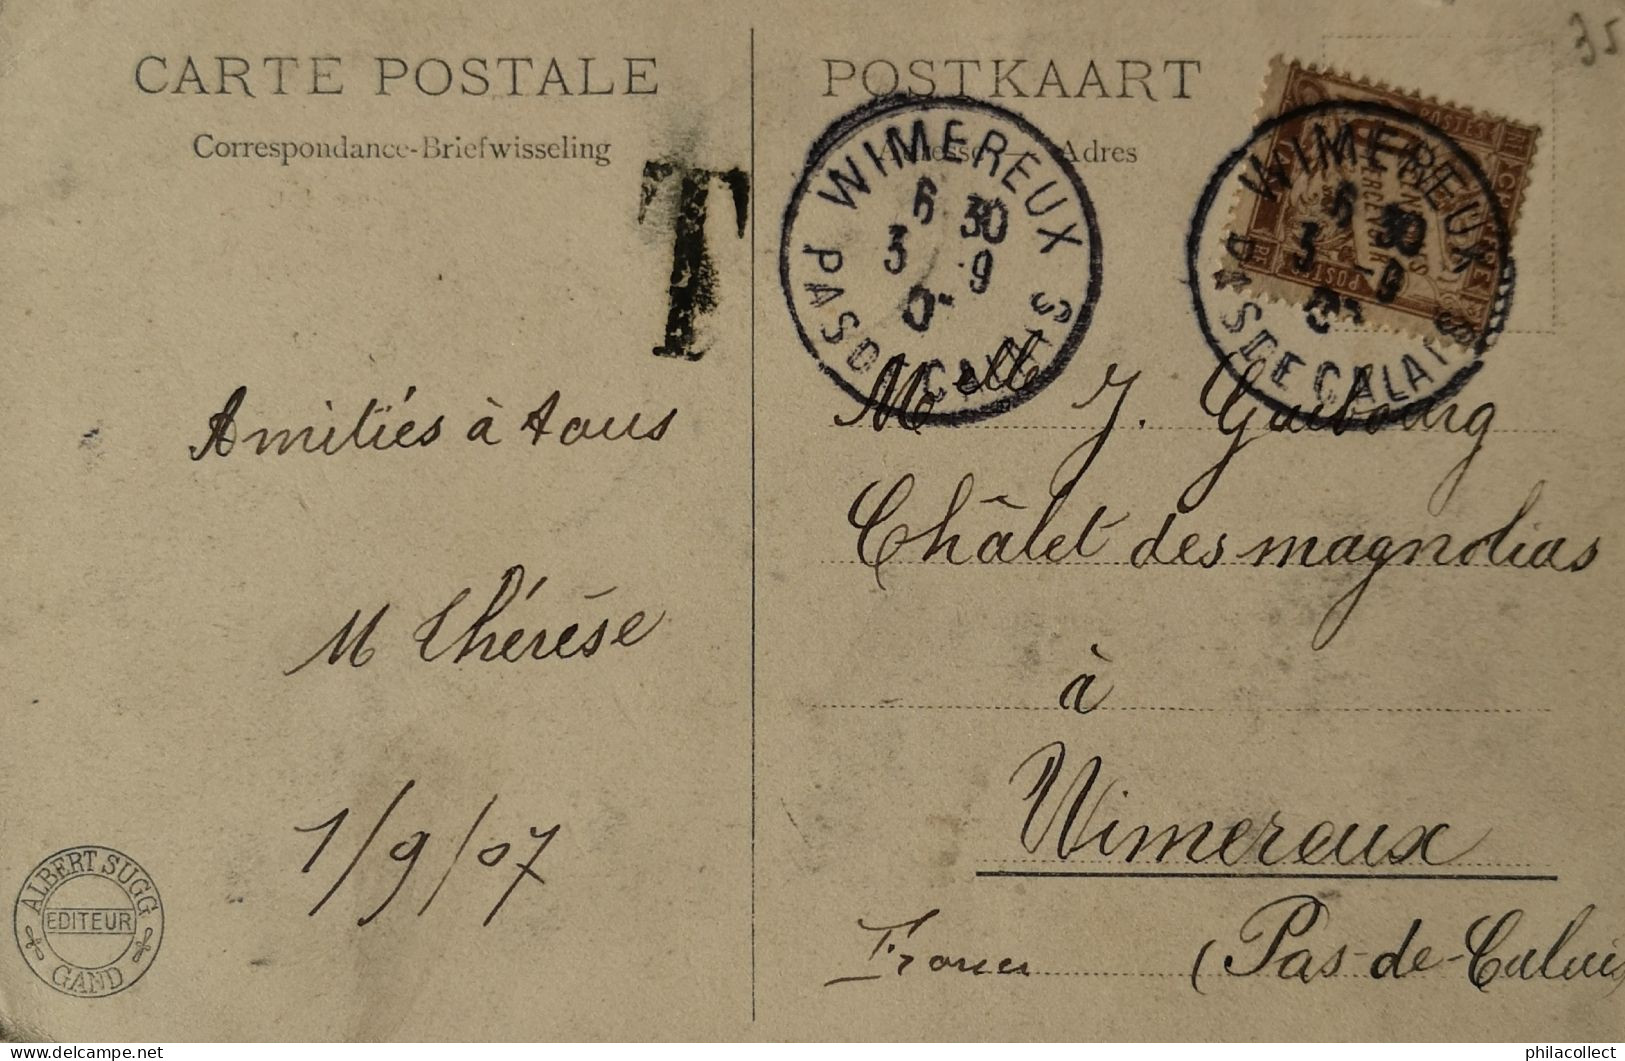 CARTE POSTALE
Correspondance-Briefwisseling
POSTKAART
Adresse — Adres
35
T
WIMEREUX
6 30
3 - 9
0
PAS DE CALAIS
WIMEREUX
6 30
3 - 9
PAS DE CALAIS
POSTES
Amitiés à tous
M Thérèse
1/9/07
Melle J. Guibourg
Châlet des magnolias
à
Wimereux
France (Pas-de-Calais
ALBERT SUGG
EDITEUR
GAND
philacollect
delcampe.net